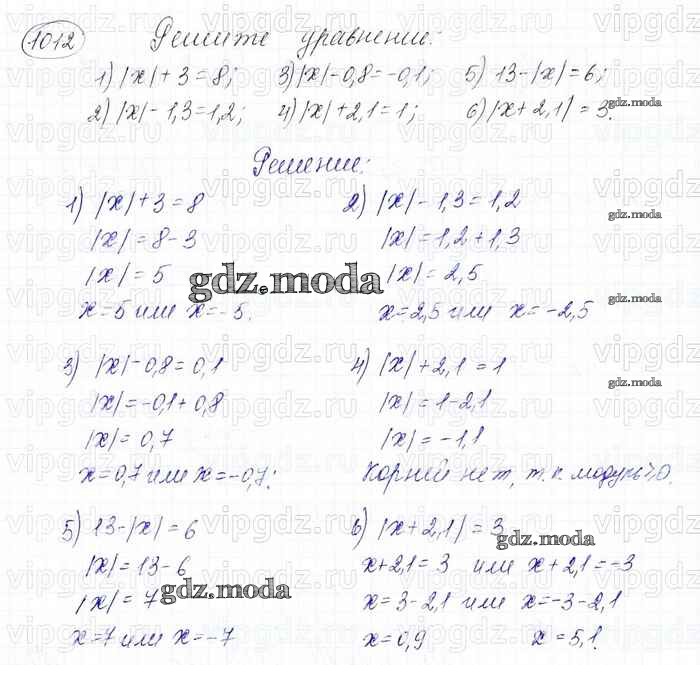 1012 Решите уравнение:
1) |x|+3=8; 3) |x|-0,8=-0,1; 5) 13-|x|=6;
2) |x|-1,3=1,2; 4) |x|+2,1=1; 6) |x+2,1|=3.
gdz.moda
Решение:
1) |x|+3=8
|x|=8-3
|x|=5
x=5 или x=-5.
2) |x|-1,3=1,2
|x|=1,2+1,3
|x|=2,5
x=2,5 или x=-2,5
gdz.moda
gdz.moda
gdz.moda
3) |x|-0,8=0,1
|x|=-0,1+0,8
|x|=0,7
x=0,7 или x=-0,7;
4) |x|+2,1=1
|x|=1-2,1
|x|=-1,1
Корней нет, т.к. модуль≥0.
gdz.moda
5) 13-|x|=6
|x|=13-6
|x|=7
x=7 или x=-7
gdz.moda
6) |x+2,1|=3
x+2,1=3 или x+2,1=-3
x=3-2,1 или x=-3-2,1
x=0,9 x=5,1.
gdz.moda
vipgdz.ru